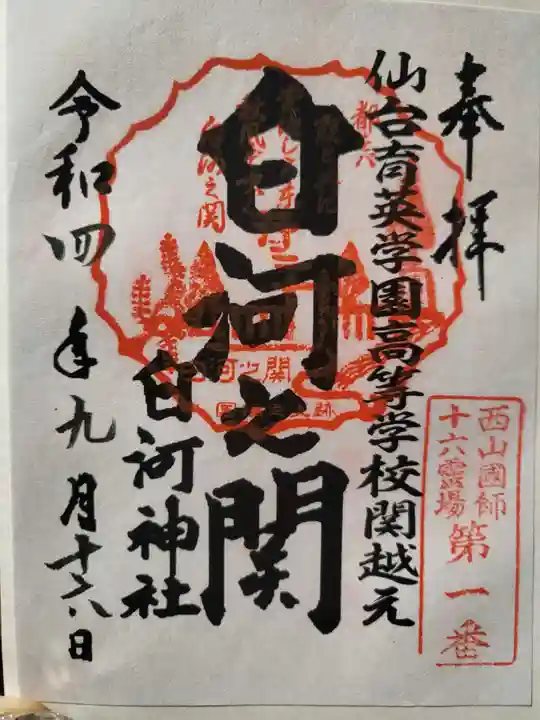 奉拝
仙台育英学園高等学校関越元
白河之関
白河神社
令和四年九月十六日
西山國師
十六霊場
第一番